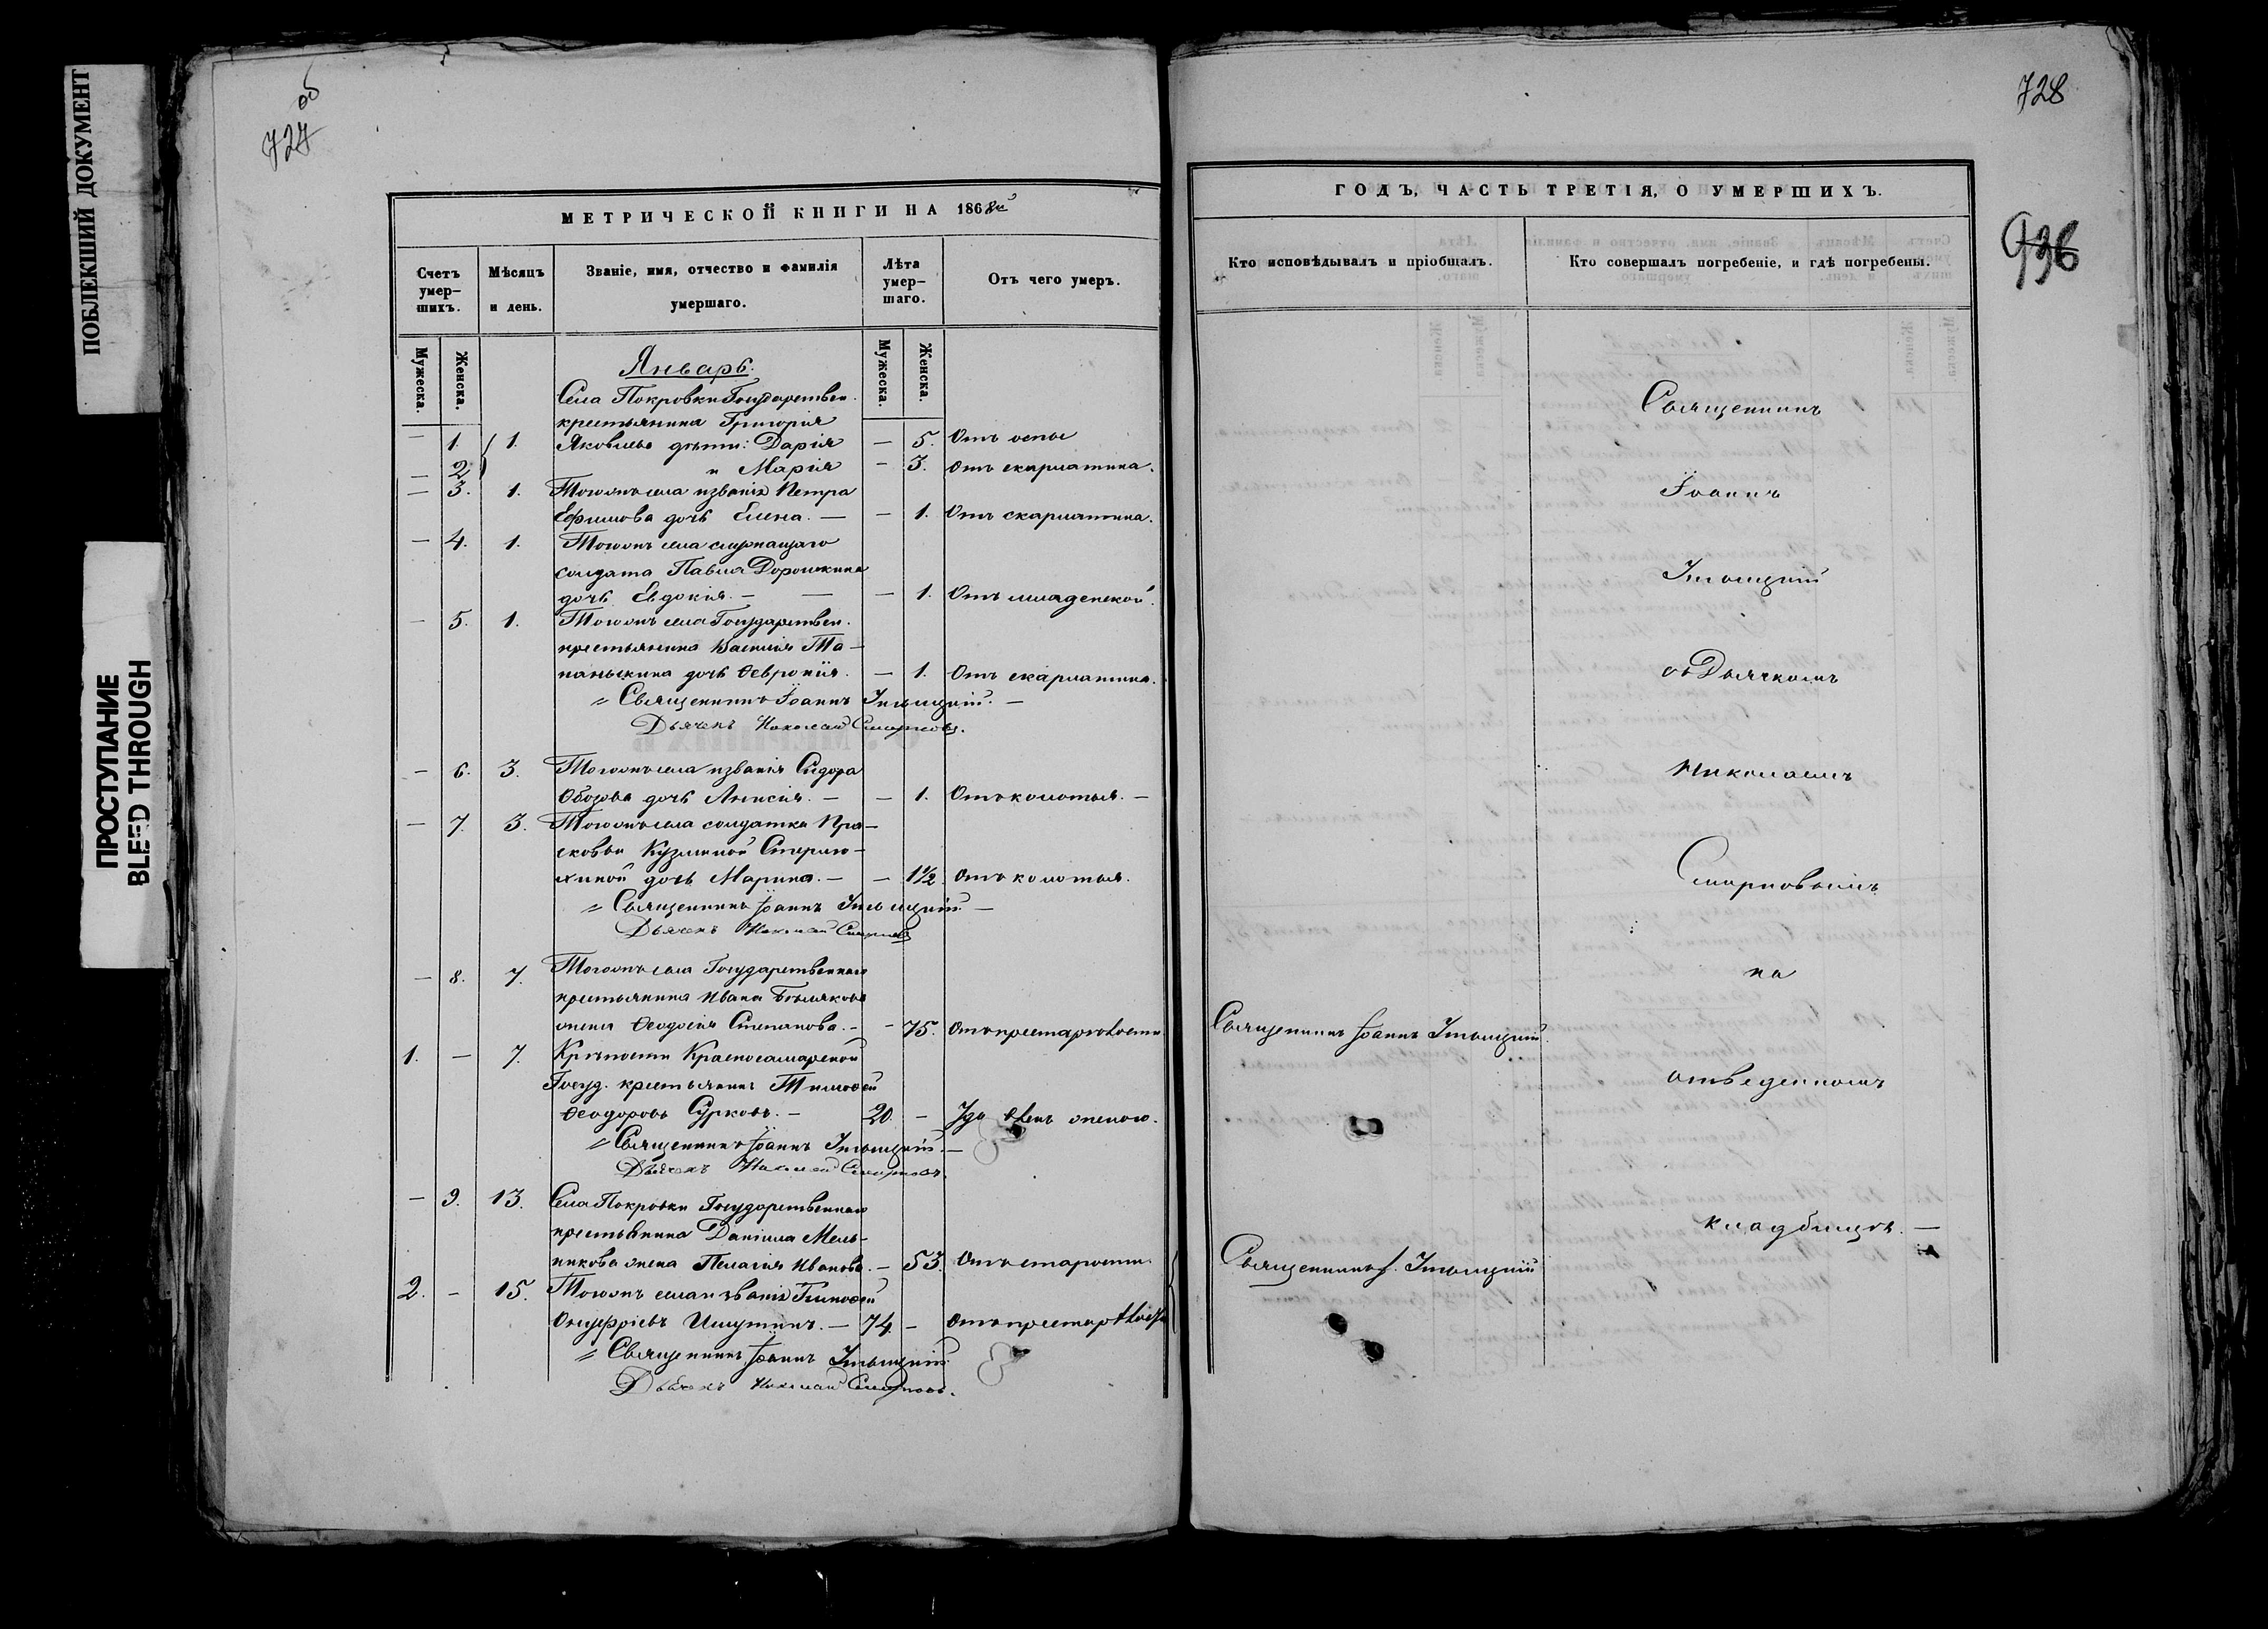 ПОБЛЕКШИЙ ДОКУМЕНТ
ПРОСТУПАНИЕ
BLEED THROUGH
727 об
МЕТРИЧЕСКОЙ КНИГИ НА 1868й
Счетъ умер-шихъ.
Мѣсяцъ и день.
Званіе, имя, отчество и фамилія умершаго.
Лѣта умер-шаго.
Отъ чего умеръ.
Мужеска.
Женска.
Мужеска.
Женска.
Январь.
Села Покровки Государствен.
крестьянина Григорія
— 1. 1. Яковлева дѣти: Дарія — 5. Отъ оспы
— 2. и Марія — 3. Отъ скарлатина.
— 3. 1. Тогожъ села и званія Петра
Ефимова дочь Елена. — — 1. Отъ скарлатина.
— 4. 1. Тогожъ села служащаго
солдата Павла Дорошкина
дочь Евдокія. — — — 1. Отъ младенской.
— 5. 1. Тогожъ села Государствен.
крестьянина Василія Та-
панькина дочь Ѳевронія. — 1. Отъ скарлатина.
Священникъ Іоаннъ
Дьячекъ Николай Смирновъ.
— 6. 3. Тогожъ села и званія Сидора
Обозова дочь Анисія. — — 1. Отъ колотья. —
— 7. 3. Тогожъ села солдатки Пра-
сковьи Кузминой
дочь Марина. — — 1½ Отъ колотья.
Священникъ Іоаннъ
Дьячекъ Николай Смирновъ
— 8. 7. Тогожъ села Государственнаго
крестьянина Ивана Бѣлякова
жена Ѳеодосія Степанова. — — 75. Отъ престарѣлости
1. — 7. Крѣпости Красносамарской
Госуд. крестьянинъ Тимоѳей
Ѳеодоровъ Сурковъ. — 20. —
Священникъ Іоаннъ
Дьячекъ Николай Смирновъ.
— 9. 13. Села Покровки Государственнаго
крестьянина Даніила Мель-
никова жена Пелагія Иванова. — 53. Отъ старости.
2. — 15. Тогожъ села и званія
Онуфріевъ — 74. — Отъ престарѣлости
Священникъ Іоаннъ
Дьячекъ Николай Смирновъ.
728
936
ГОДЪ, ЧАСТЬ ТРЕТІЯ, О УМЕРШИХЪ.
Кто исповѣдывалъ и пріобщалъ.
Кто совершалъ погребеніе, и гдѣ погребены.
Священникъ
Іоаннъ
съ Дьячкомъ
Николаемъ
Смирновымъ
на
Священникъ Іоаннъ
отведенномъ
кладбищѣ. —
Священникъ І.